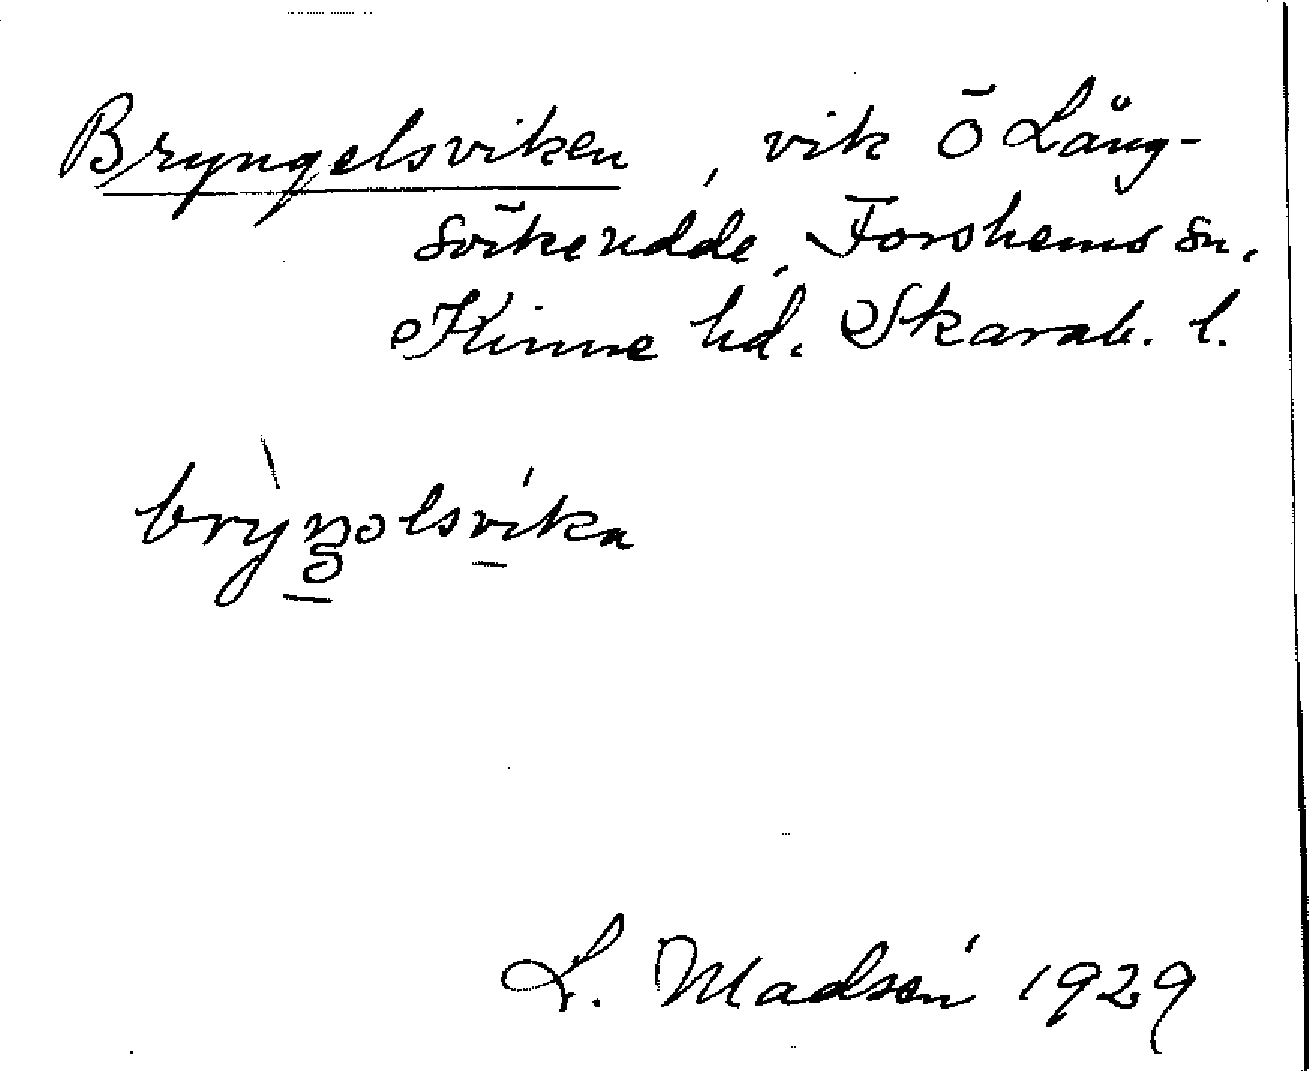 Bryngelsviken, vik Ö Lång-
svikeudde, Forshems sn.
Kinne hd. Skarab. l.
L. Madsén 1929